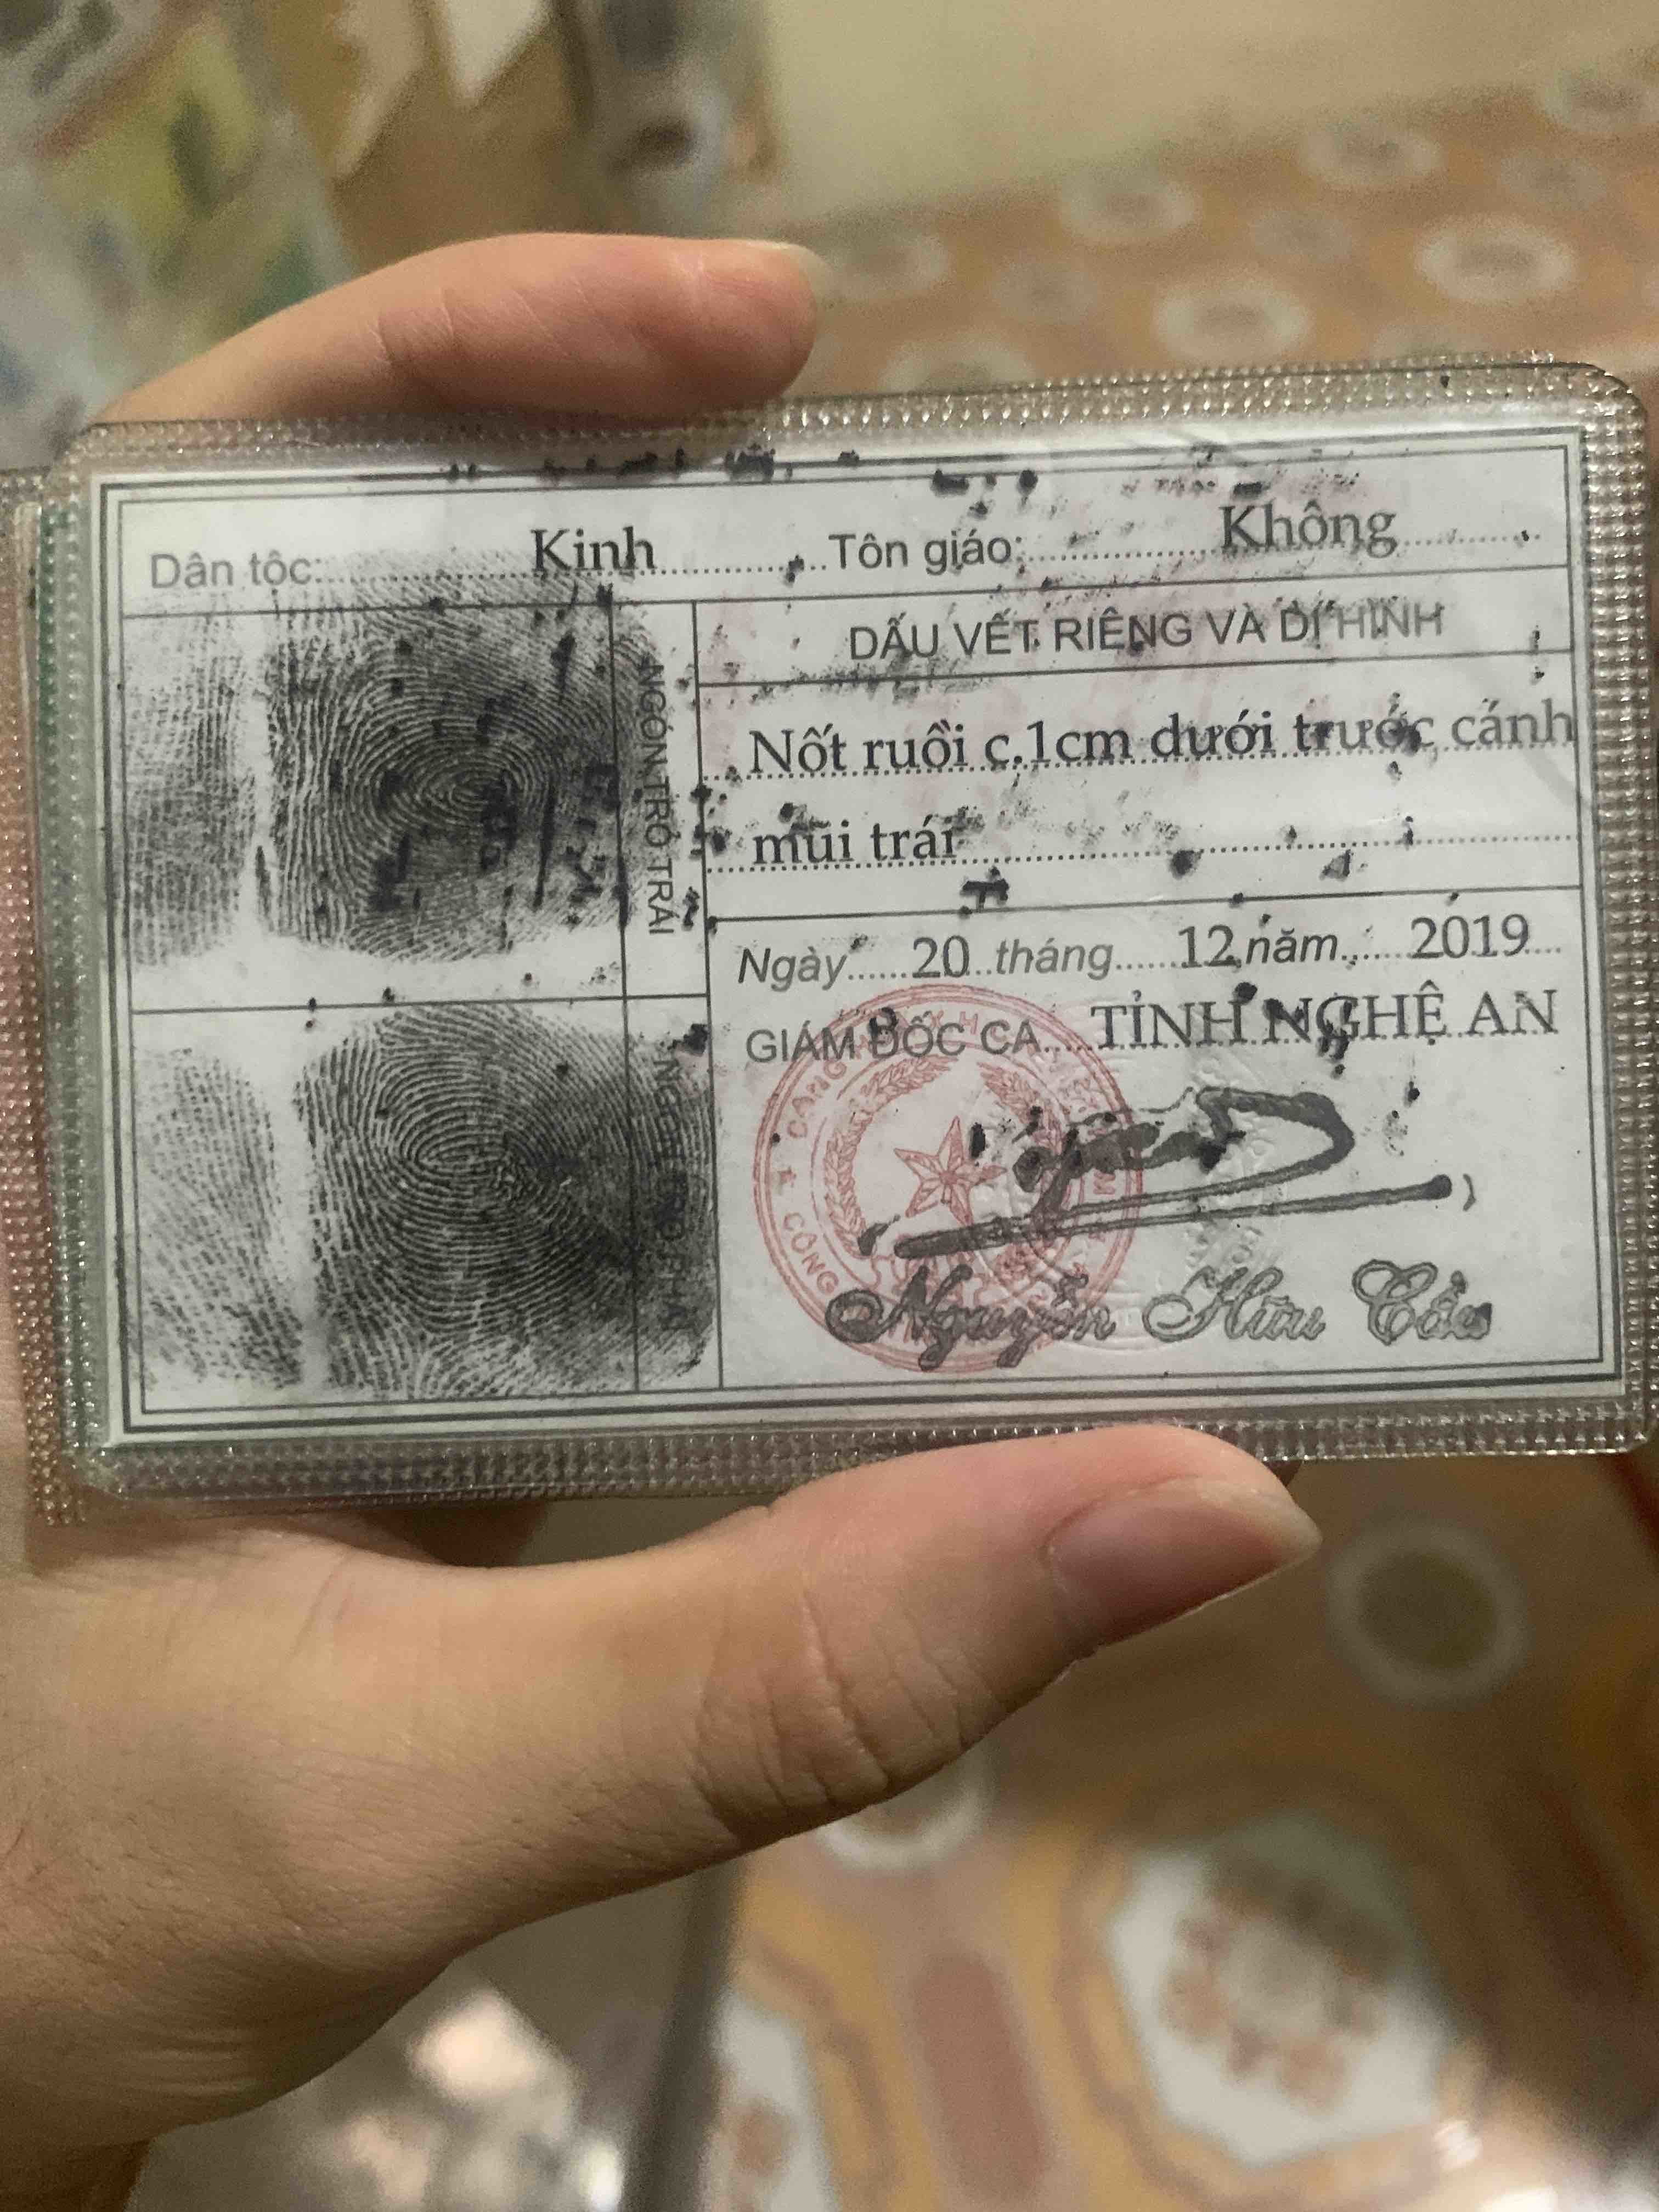 Dân tộc: Kinh Tôn giáo: Không
NGÓN TRỎ TRÁI
DẤU VẾT RIÊNG VÀ DỊ HÌNH
Nốt ruồi c.1cm dưới trước cánh
mũi trái
Ngày 20 tháng 12 năm 2019
GIÁM ĐỐC CA TỈNH NGHỆ AN
NGÓN TRỎ PHẢI
CÔNG
Nguyễn Hữu Cầu